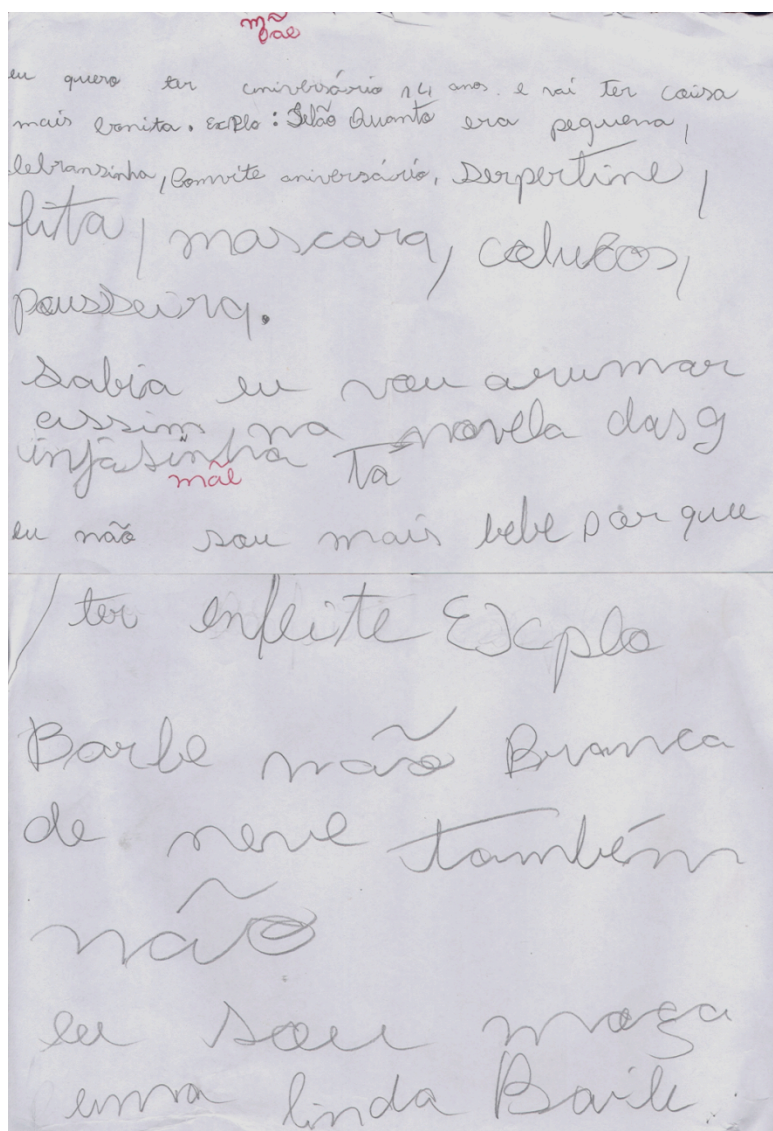 mãe
eu quero ter aniversário 14 anos e vai ter coisa
mais bonita. Explo: Telão Quanto era pequena,
lebransinha, Comvite aniversário, serpertine,
fita, mascara, colucos,
pousseira.
Sabia eu vou arumar
assim, na novela das 9
injasinha Tá
mãe
eu não sou mais bebe porque
ter enfeite Explo
Barbe não Branca
de neve também
não
eu sou moça
uma linda Baile.